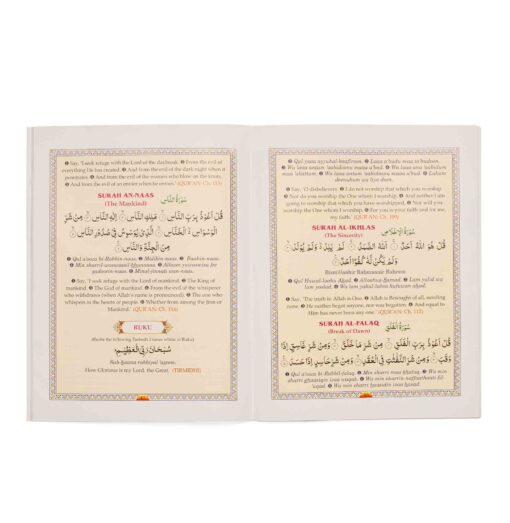 Qul yaaa ayyuhal-kaafiroon. Laaa a'budu maa ta'budoon.
Wa laaa antum 'aabidoona maaa a'bud. Wa laaa ana 'aabidum
maa 'abattum. Wa laaa antum 'aabidoona maaa a'bud. Lakum
deenukum wa liya deen.
Say, 'O disbelievers: I do not worship that which you worship.
Nor do you worship the One whom I worship. And neither I am
going to worship that which you have worshipped, Nor will you
worship the One whom I worship. For you is your faith and for me,
my faith.' (QUR'AN: Ch. 109)
SURAH AL-IKHLAS
(The Sincerity)
سُوْرَةُ الْاِخْلَاص
قُلْ هُوَ اللّٰهُ اَحَدٌ اَللّٰهُ الصَّمَدُ لَمْ يَلِدْ وَلَمْ يُوْلَدْ
وَلَمْ يَكُنْ لَّهٗ كُفُوًا اَحَدٌ
Bismillaahir Rahmaanir Raheem
Qul Huwal-laahu Ahad. Allaahus-Samad. Lam yalid wa
lam yoolad. Wa lam yakul-lahoo kufuwan ahad.
Say, 'The truth is Allah is One. Allah is Besought of all, needing
none. He neither begot anyone, nor was begotten. And equal to
Him has never been any one.' (QUR'AN: Ch. 112)
SURAH AL-FALAQ
(Break of Dawn)
سُوْرَةُ الْفَلَق
قُلْ اَعُوْذُ بِرَبِّ الْفَلَقِ مِنْ شَرِّ مَا خَلَقَ وَمِنْ شَرِّ غَاسِقٍ اِذَا
وَقَبَ وَمِنْ شَرِّ النَّفّٰثٰتِ فِي الْعُقَدِ وَمِنْ شَرِّ حَاسِدٍ اِذَا حَسَدَ
Qul a'oozu bi-Rabbil-falaq. Min sharri maa khalaq. Wa min
sharri ghaasiqin izaa waqab. Wa min sharrin-naffaathaati fil-
'uqad. Wa min sharri haasidin izaa hasad.
Say, 'I seek refuge with the Lord of the daybreak. From the evil of
everything He has created. And from the evil of the dark night when it
penetrates. And from the evil of the women who blow on the knots,
And from the evil of an envier when he envies.' (QUR'AN: Ch. 113)
SURAH AN-NAAS
(The Mankind)
سُوْرَةُ النَّاس
قُلْ اَعُوْذُ بِرَبِّ النَّاسِ مَلِكِ النَّاسِ اِلٰهِ النَّاسِ مِنْ شَرِّ
الْوَسْوَاسِ الْخَنَّاسِ الَّذِيْ يُوَسْوِسُ فِيْ صُدُوْرِ النَّاسِ
مِنَ الْجِنَّةِ وَالنَّاسِ
Qul a'oozu bi-Rabbin-naas. Malikin-naas. Ilaahin-naas.
Min sharril-waswaasil-khannaas. Allazee yuwaswisu fee
sudoorin-naas. Minal-jinnati wan-naas.
Say, 'I seek refuge with the Lord of mankind. The King of
mankind. The God of mankind. From the evil of the whisperer
who withdraws (when Allah's name is pronounced). The one who
whispers in the hearts of people. Whether from among the Jinn or
Mankind.' (QUR'AN: Ch. 114)
RUKU
(Recite the following Tasbeeh 3 times while in Ruku)
سُبْحَانَ رَبِّيَ الْعَظِيْمِ
Sub-haana rabbiyal 'azeem.
How Glorious is my Lord, the Great. (TIRMIDHI)